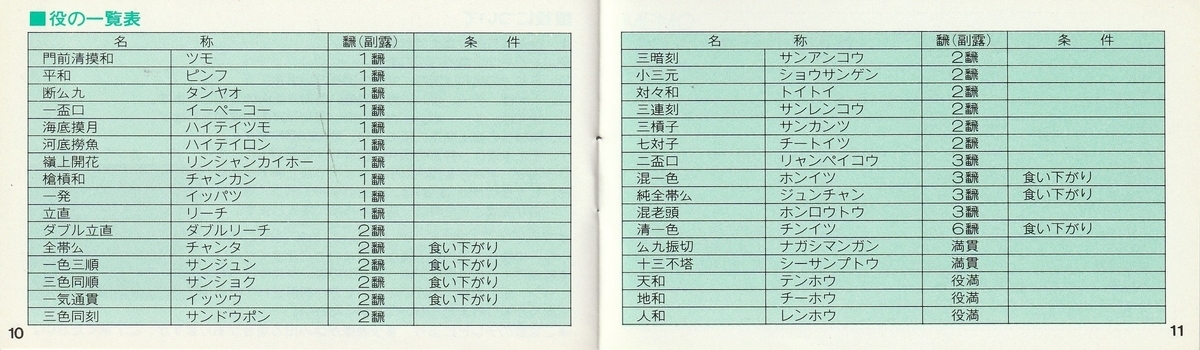 ■役の一覧表
名 称 飜(副露) 条 件
門前清摸和 ツモ 1飜
平和 ピンフ 1飜
断么九 タンヤオ 1飜
一盃口 イーペーコー 1飜
海底摸月 ハイテイツモ 1飜
河底撈魚 ハイテイロン 1飜
嶺上開花 リンシャンカイホー 1飜
槍槓和 チャンカン 1飜
一発 イッパツ 1飜
立直 リーチ 1飜
ダブル立直 ダブルリーチ 2飜
全帯么 チャンタ 2飜 食い下がり
一色三順 サンジュン 2飜 食い下がり
三色同順 サンショク 2飜 食い下がり
一気通貫 イッツウ 2飜 食い下がり
三色同刻 サンドウポン 2飜
10
名 称 飜(副露) 条 件
三暗刻 サンアンコウ 2飜
小三元 ショウサンゲン 2飜
対々和 トイトイ 2飜
三連刻 サンレンコウ 2飜
三槓子 サンカンツ 2飜
七対子 チートイツ 2飜
二盃口 リャンペイコウ 3飜
混一色 ホンイツ 3飜 食い下がり
純全帯么 ジュンチャン 3飜 食い下がり
混老頭 ホンロウトウ 3飜
清一色 チンイツ 6飜 食い下がり
么九振切 ナガシマンガン 満貫
十三不塔 シーサンプトウ 満貫
天和 テンホウ 役満
地和 チーホウ 役満
人和 レンホウ 役満
11